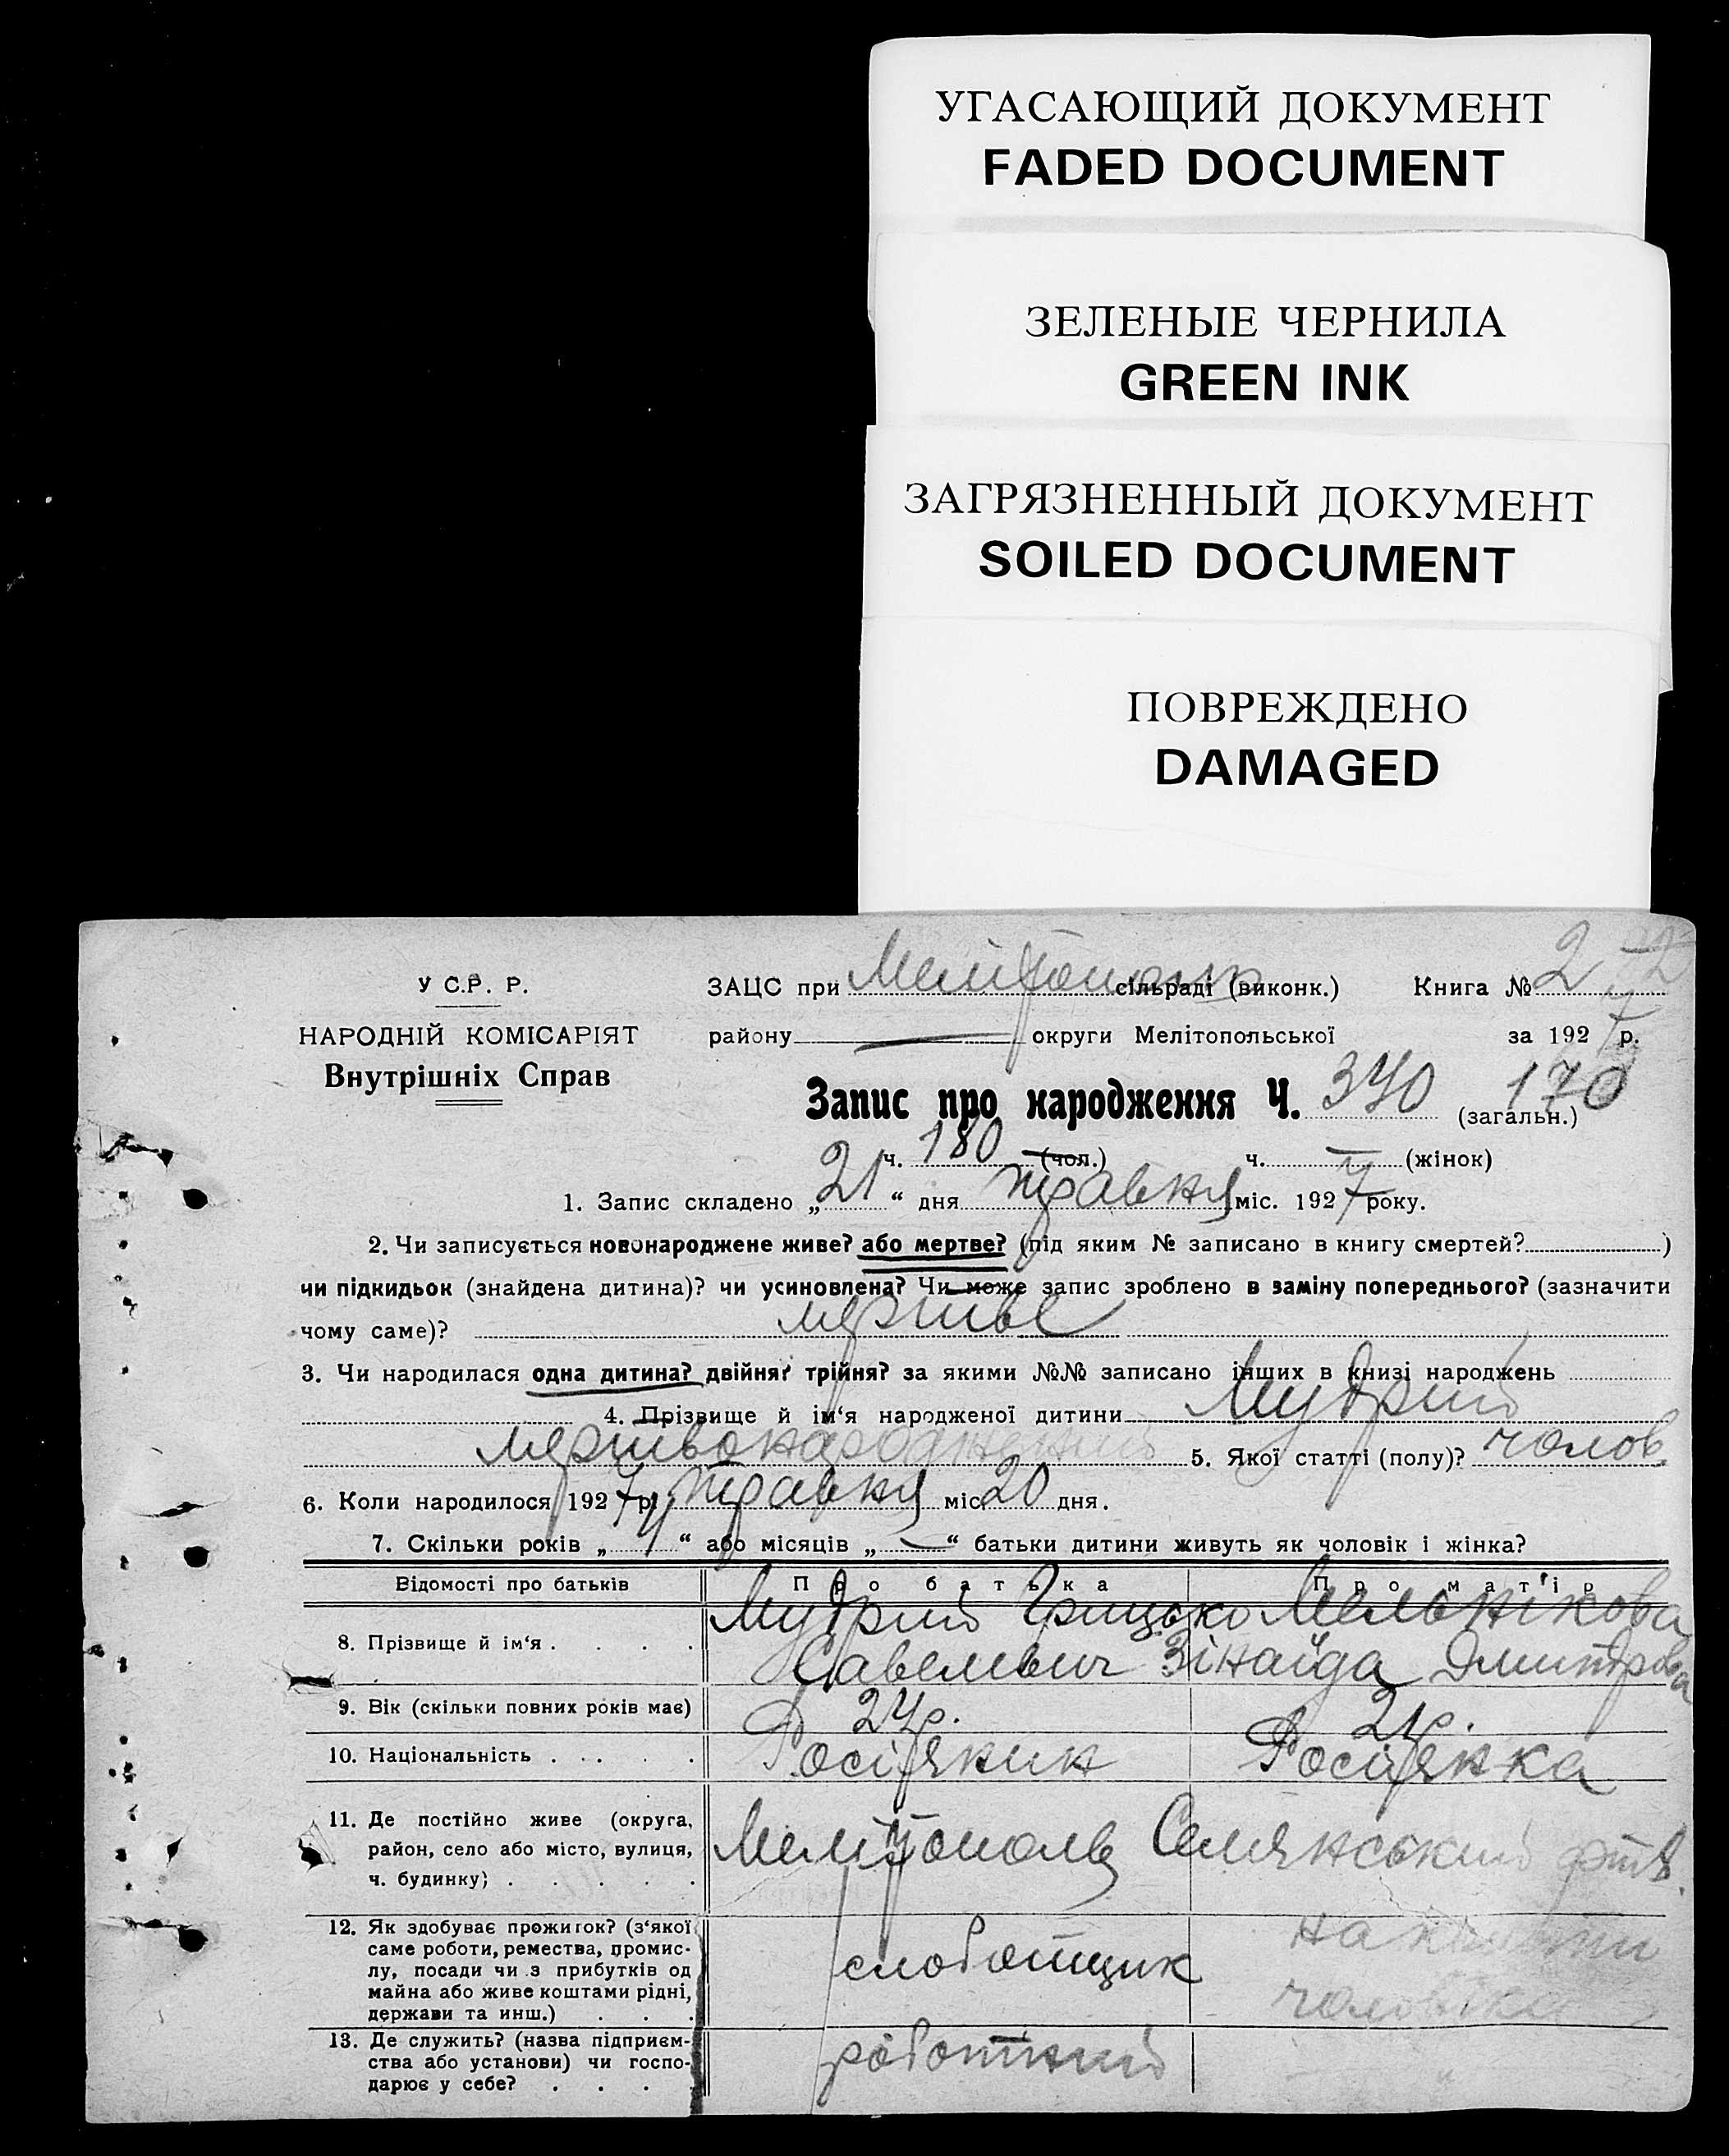 УГАСАЮЩИЙ ДОКУМЕНТ
FADED DOCUMENT
ЗЕЛЕНЫЕ ЧЕРНИЛА
GREEN INK
ЗАГРЯЗНЕННЫЙ ДОКУМЕНТ
SOILED DOCUMENT
ПОВРЕЖДЕНО
DAMAGED
У С.Р. Р.
НАРОДНІЙ КОМІСАРІЯТ
Внутрішніх Справ
ЗАЦС при сільраді (виконк.) Книга № 2
району — округи Мелітопольської за 1927 р.
Запис про народження Ч. 340 170 (загальн.)
ч. 180 (чол.) ч. — (жінок)
1. Запис складено „21“ дня травня міс. 1927 року.
2. Чи записується новонароджене живе? або мертве? (під яким № записано в книгу смертей? )
чи підкидьок (знайдена дитина)? чи усиновлена? Чи може запис зроблено в заміну попереднього? (зазначити
чому саме)? мертве
3. Чи народилася одна дитина? двійня? трійня? за якими №№ записано інших в книзі народжень
4. Прізвище й ім‘я народженої дитини Мудрий
мертвонароджений 5. Якої статті (полу)? чолов.
6. Коли народилося 1927 р. травня міс. 20 дня.
7. Скільки років „ “ або місяців „—“ батьки дитини живуть як чоловік і жінка?
Відомості про батьків Про батька Про матір
8. Прізвище й ім‘я . . . . Мудрий Грицько Мельнікова
Савельевич Зінаїда Дмитрова
9. Вік (скільки повних років має) 24 р. 21 р.
10. Національність . . . . Росіянин Росіянка
11. Де постійно живе (округа,
район, село або місто, вулиця,
ч. будинку) . . . . . Мелітополь
12. Як здобуває прожиток? (з‘якої
саме роботи, ремества, промис-
лу, посади чи з прибутків од
майна або живе коштами рідні,
держави та инш.) . . . на кошти
чоловіка
13. Де служить? (назва підприєм-
ства або установи) чи госпо-
дарює у себе? . . . .